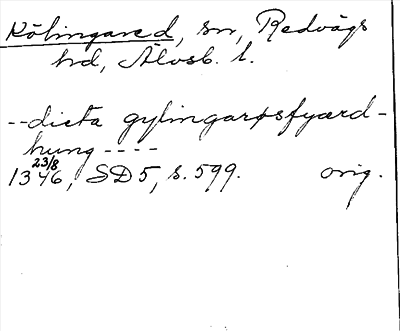 Kölingared, sn, Redvägs
hd, Älvsb. l.
--dicta gylingarøsfyærd-
hung ----
23/8
1346, SD 5, s. 599. orig.